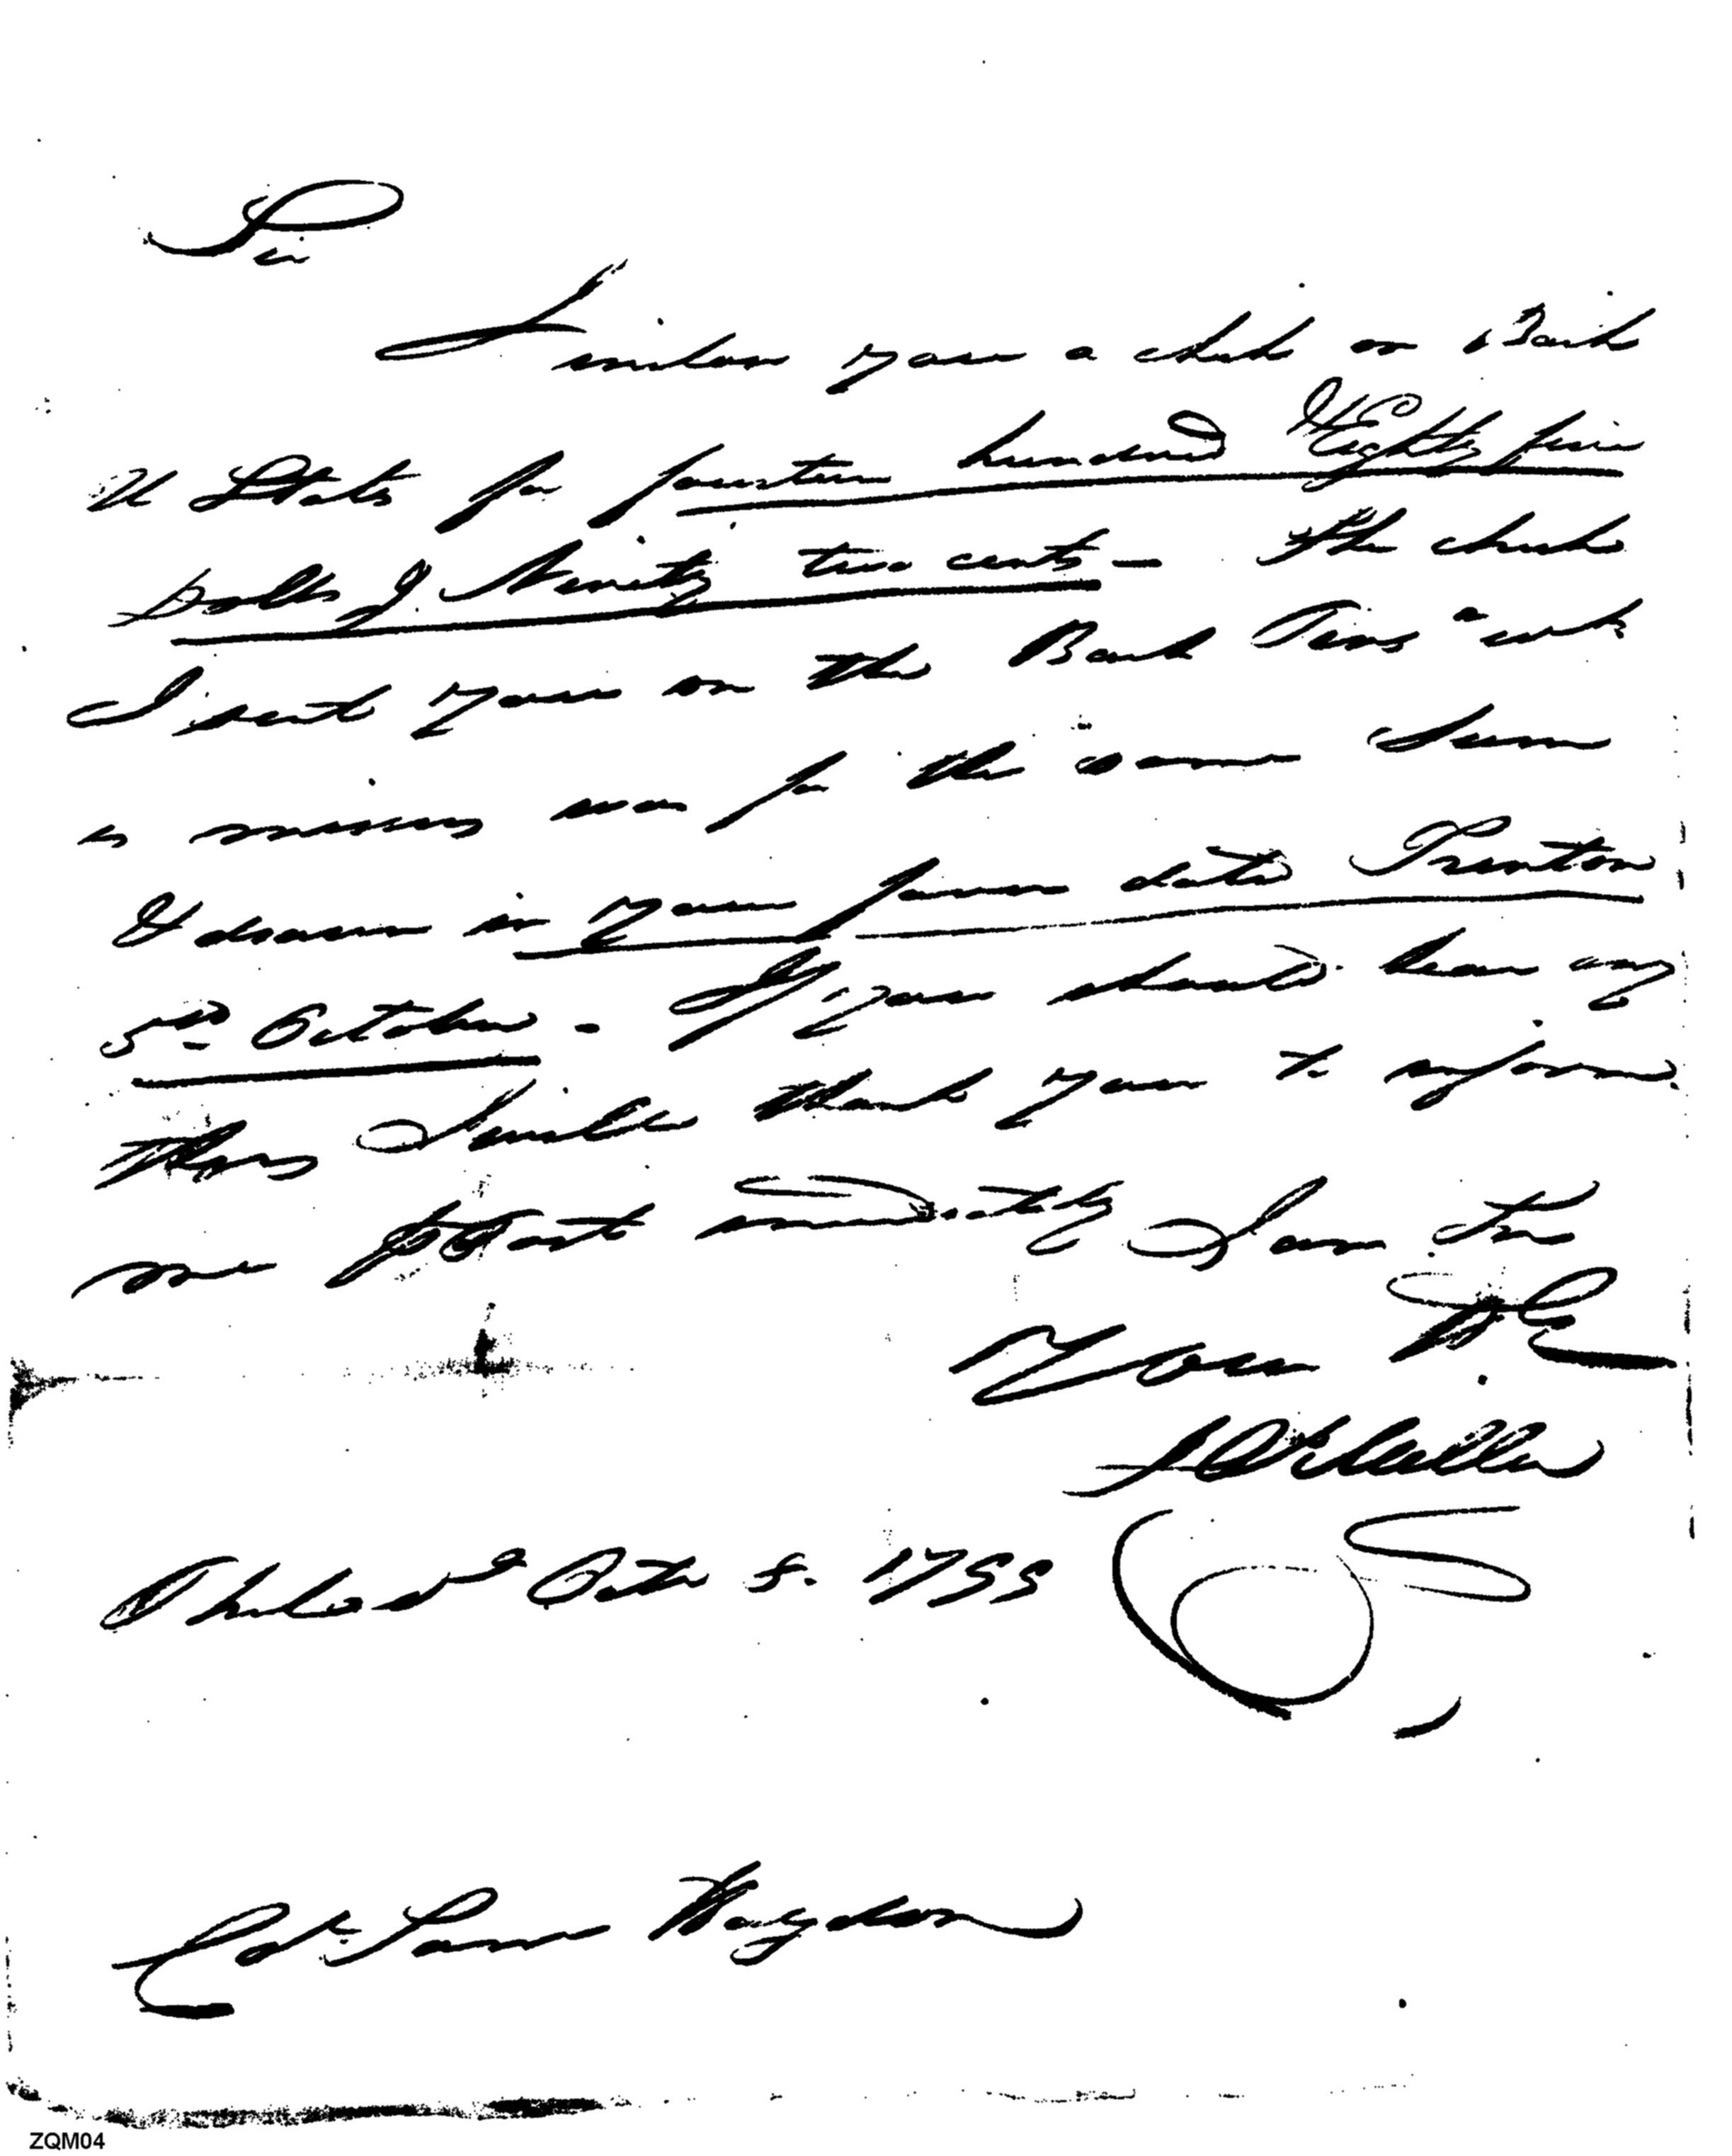 Sir
I inclose you a check on Bank
U States for fourteen hundred & Eighty five
Dolls & Ninety two cents — the check
I sent you on the Bank Penns a
is missing was for the same Sum
& drawn in your favour dated Trenton
5th October - If you should hear any
thing I will thank you to inform
me Post immediately I am Sir
Your
J O'Hara
Philad Octr 8. 1799
Col Saml Hogdon
ZQM04